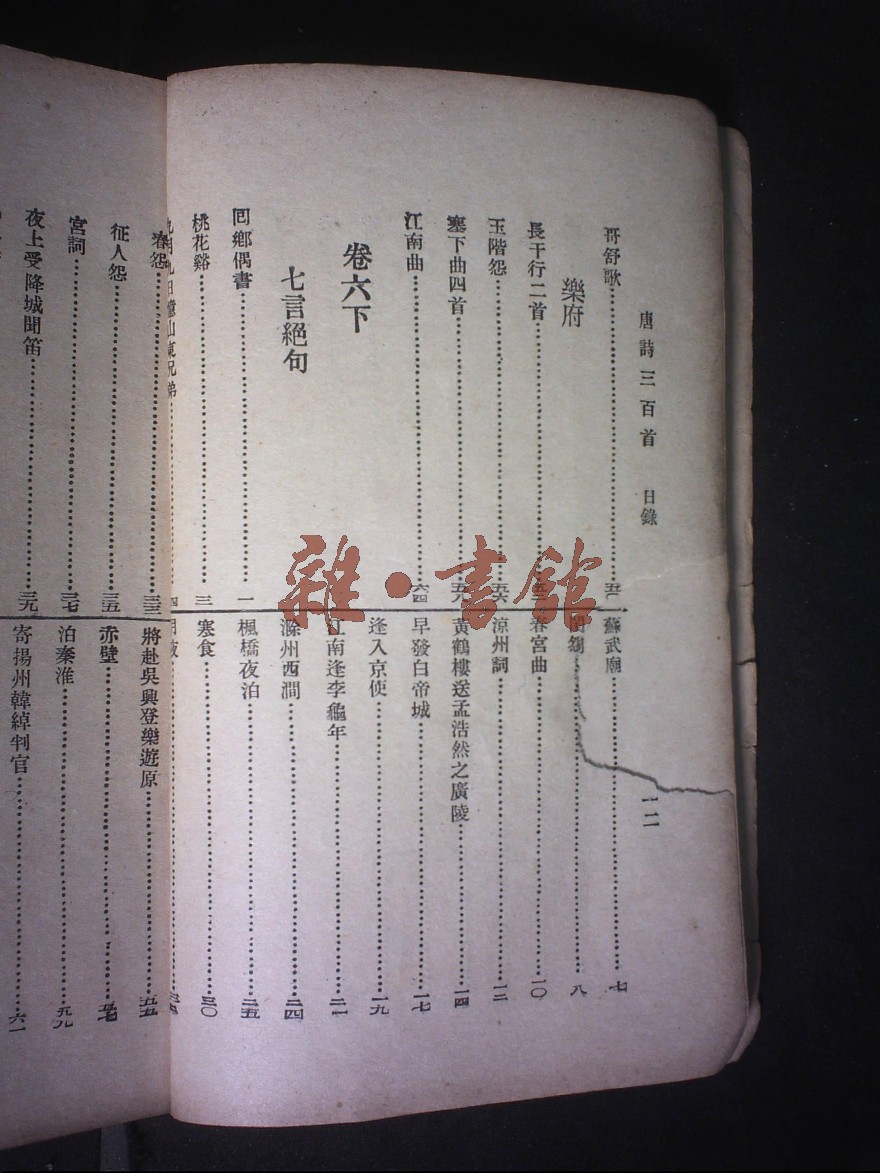 唐詩三百首 目錄 一二
哥舒歌
樂府
長干行二首……五三
玉階怨……五六
塞下曲四首……五八
江南曲……六四
卷六下
七言絕句
回鄉偶書……一
桃花谿……三
九月九日憶山東兄弟……四
蘇武廟……七
閨怨……八
春宮曲……一〇
涼州詞……一二
黃鶴樓送孟浩然之廣陵……一四
早發白帝城……一七
逢入京使……一九
江南逢李龜年……二一
滁州西澗……二四
楓橋夜泊……二五
寒食……三〇
月夜
春怨……三三
征人怨……三五
宮詞……三七
夜上受降城聞笛……三九
將赴吳興登樂遊原……五五
赤壁……五七
泊秦淮……五九
寄揚州韓綽判官……六一
雜·書館